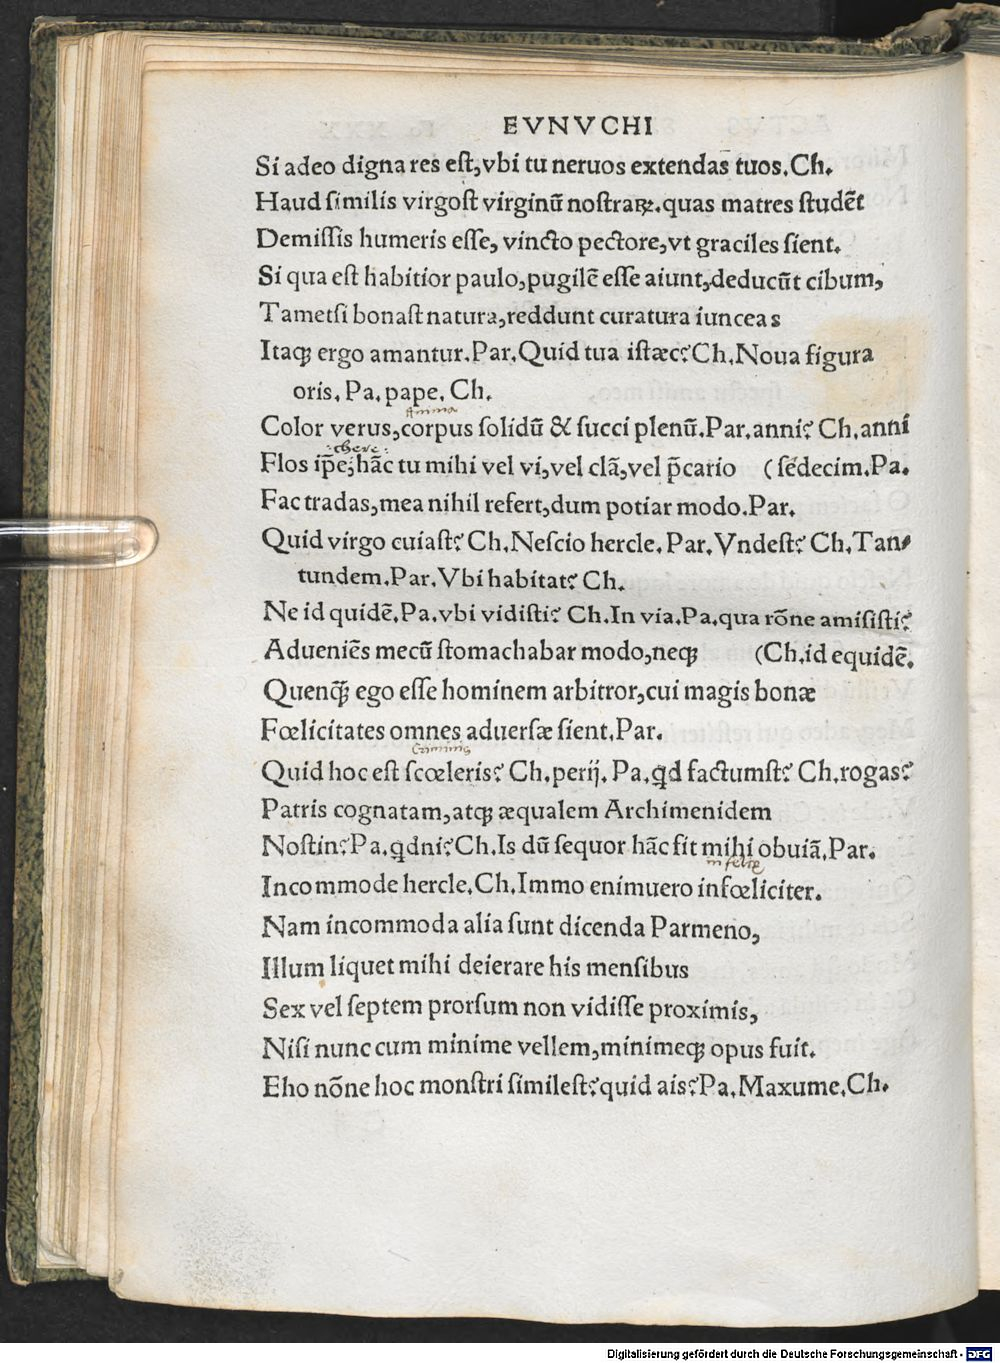 EVNVCHI
Si adeo digna res est, vbi tu neruos extendas tuos. Ch.
Haud similis virgost virginũ nostraꝝ. quas matres studẽt
Demissis humeris esse, vincto pectore, vt graciles sient.
Si qua est habitior paulo, pugilẽ esse aiunt, deducũt cibum,
Tametsi bonast natura, reddunt curatura iunceas
Itaqꝫ ergo amantur. Par. Quid tua istæc? Ch. Noua figura
oris. Pa. pape. Ch.
Color verus, corpus solidũ & succi plenũ. Par. anni? Ch. anni
Flos ip̃e; hãc tu mihi vel vi, vel clã, vel p̃cario (sedecim. Pa.
Fac tradas, mea nihil refert, dum potiar modo. Par.
Quid virgo cuiast? Ch. Nescio hercle. Par. Vndest? Ch. Tan-
tundem. Par. Vbi habitat? Ch.
Ne id quidẽ. Pa. vbi vidisti? Ch. In via. Pa. qua rõne amisisti?
Adueniẽs mecũ stomachabar modo, neqꝫ (Ch. id equidẽ.
Quenqꝫ̃ ego esse hominem arbitror, cui magis bonæ
Fœlicitates omnes aduersæ sient. Par.
Criminis
Quid hoc est scœleris? Ch. perij. Pa. qd factumst? Ch. rogas?
Patris cognatam, atqꝫ æqualem Archimenidem
Nostin? Pa. qdni? Ch. Is dũ sequor hãc fit mihi obuiã. Par.
Incommode hercle. Ch. Immo enimuero infœliciter.
Nam incommoda alia sunt dicenda Parmeno,
Illum liquet mihi deierare his mensibus
Sex vel septem prorsum non vidisse proximis,
Nisi nunc cum minime vellem, minimeqꝫ opus fuit.
Eho nõne hoc monstri similest? quid ais? Pa. Maxume. Ch.
Digitalisierung gefördert durch die Deutsche Forschungsgemeinschaft - DFG